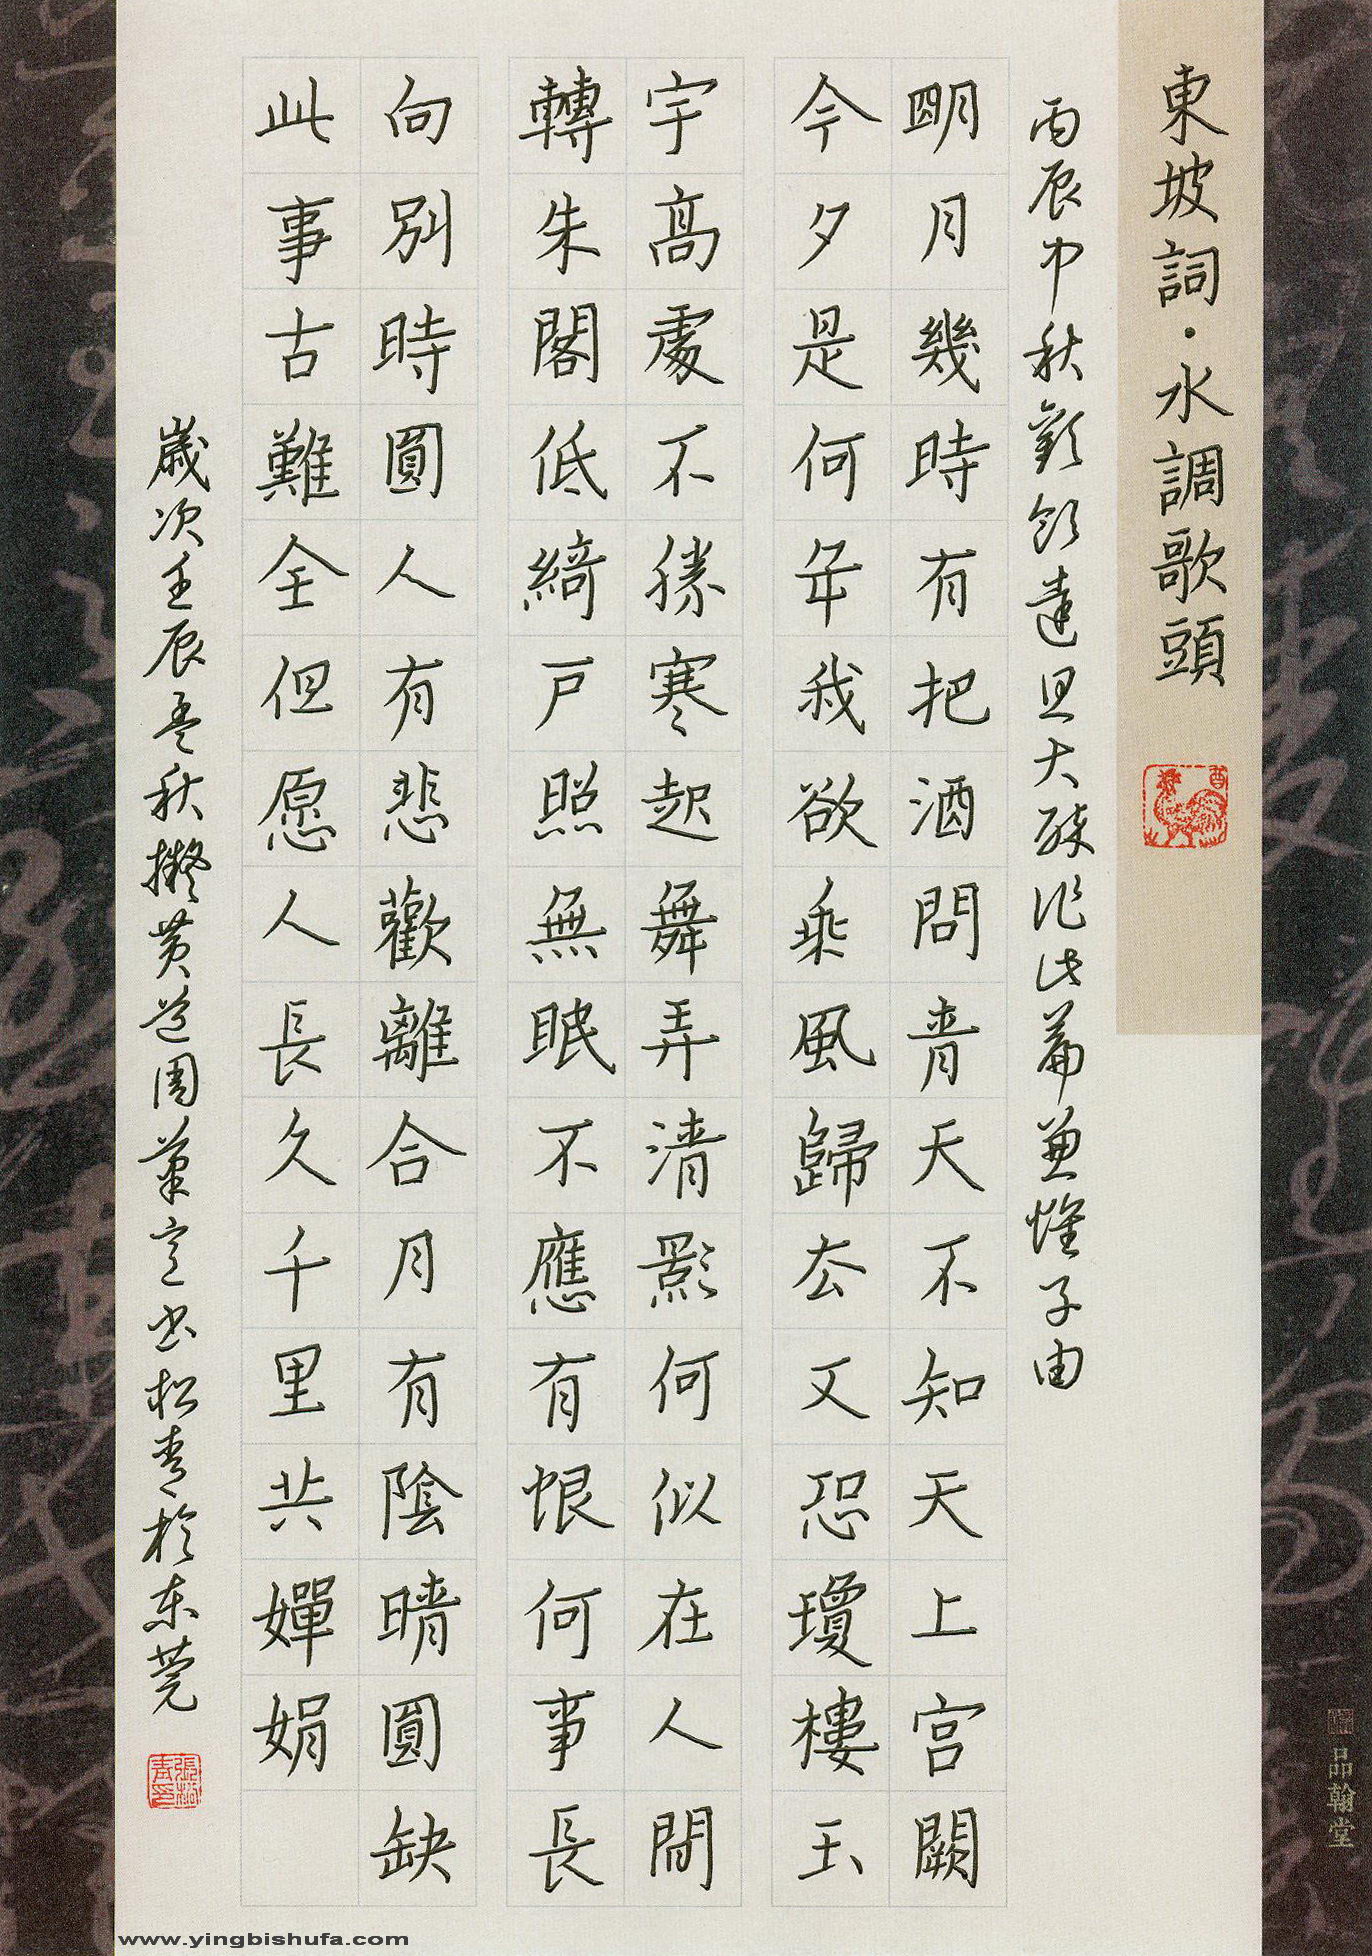 東坡詞·水調歌頭
酉
丙辰中秋歡飲達旦大醉作此篇兼懷子由
明月幾時有把酒問青天不知天上宮闕
今夕是何年我欲乘風歸去又恐瓊樓玉
宇高處不勝寒起舞弄清影何似在人間
轉朱閣低綺戶照無眠不應有恨何事長
向別時圓人有悲歡離合月有陰晴圓缺
此事古難全但愿人長久千里共嬋娟
歲次壬辰孟秋擬黃道周筆意書松青於东莞
張松青印
品翰堂
www.yingbishufa.com